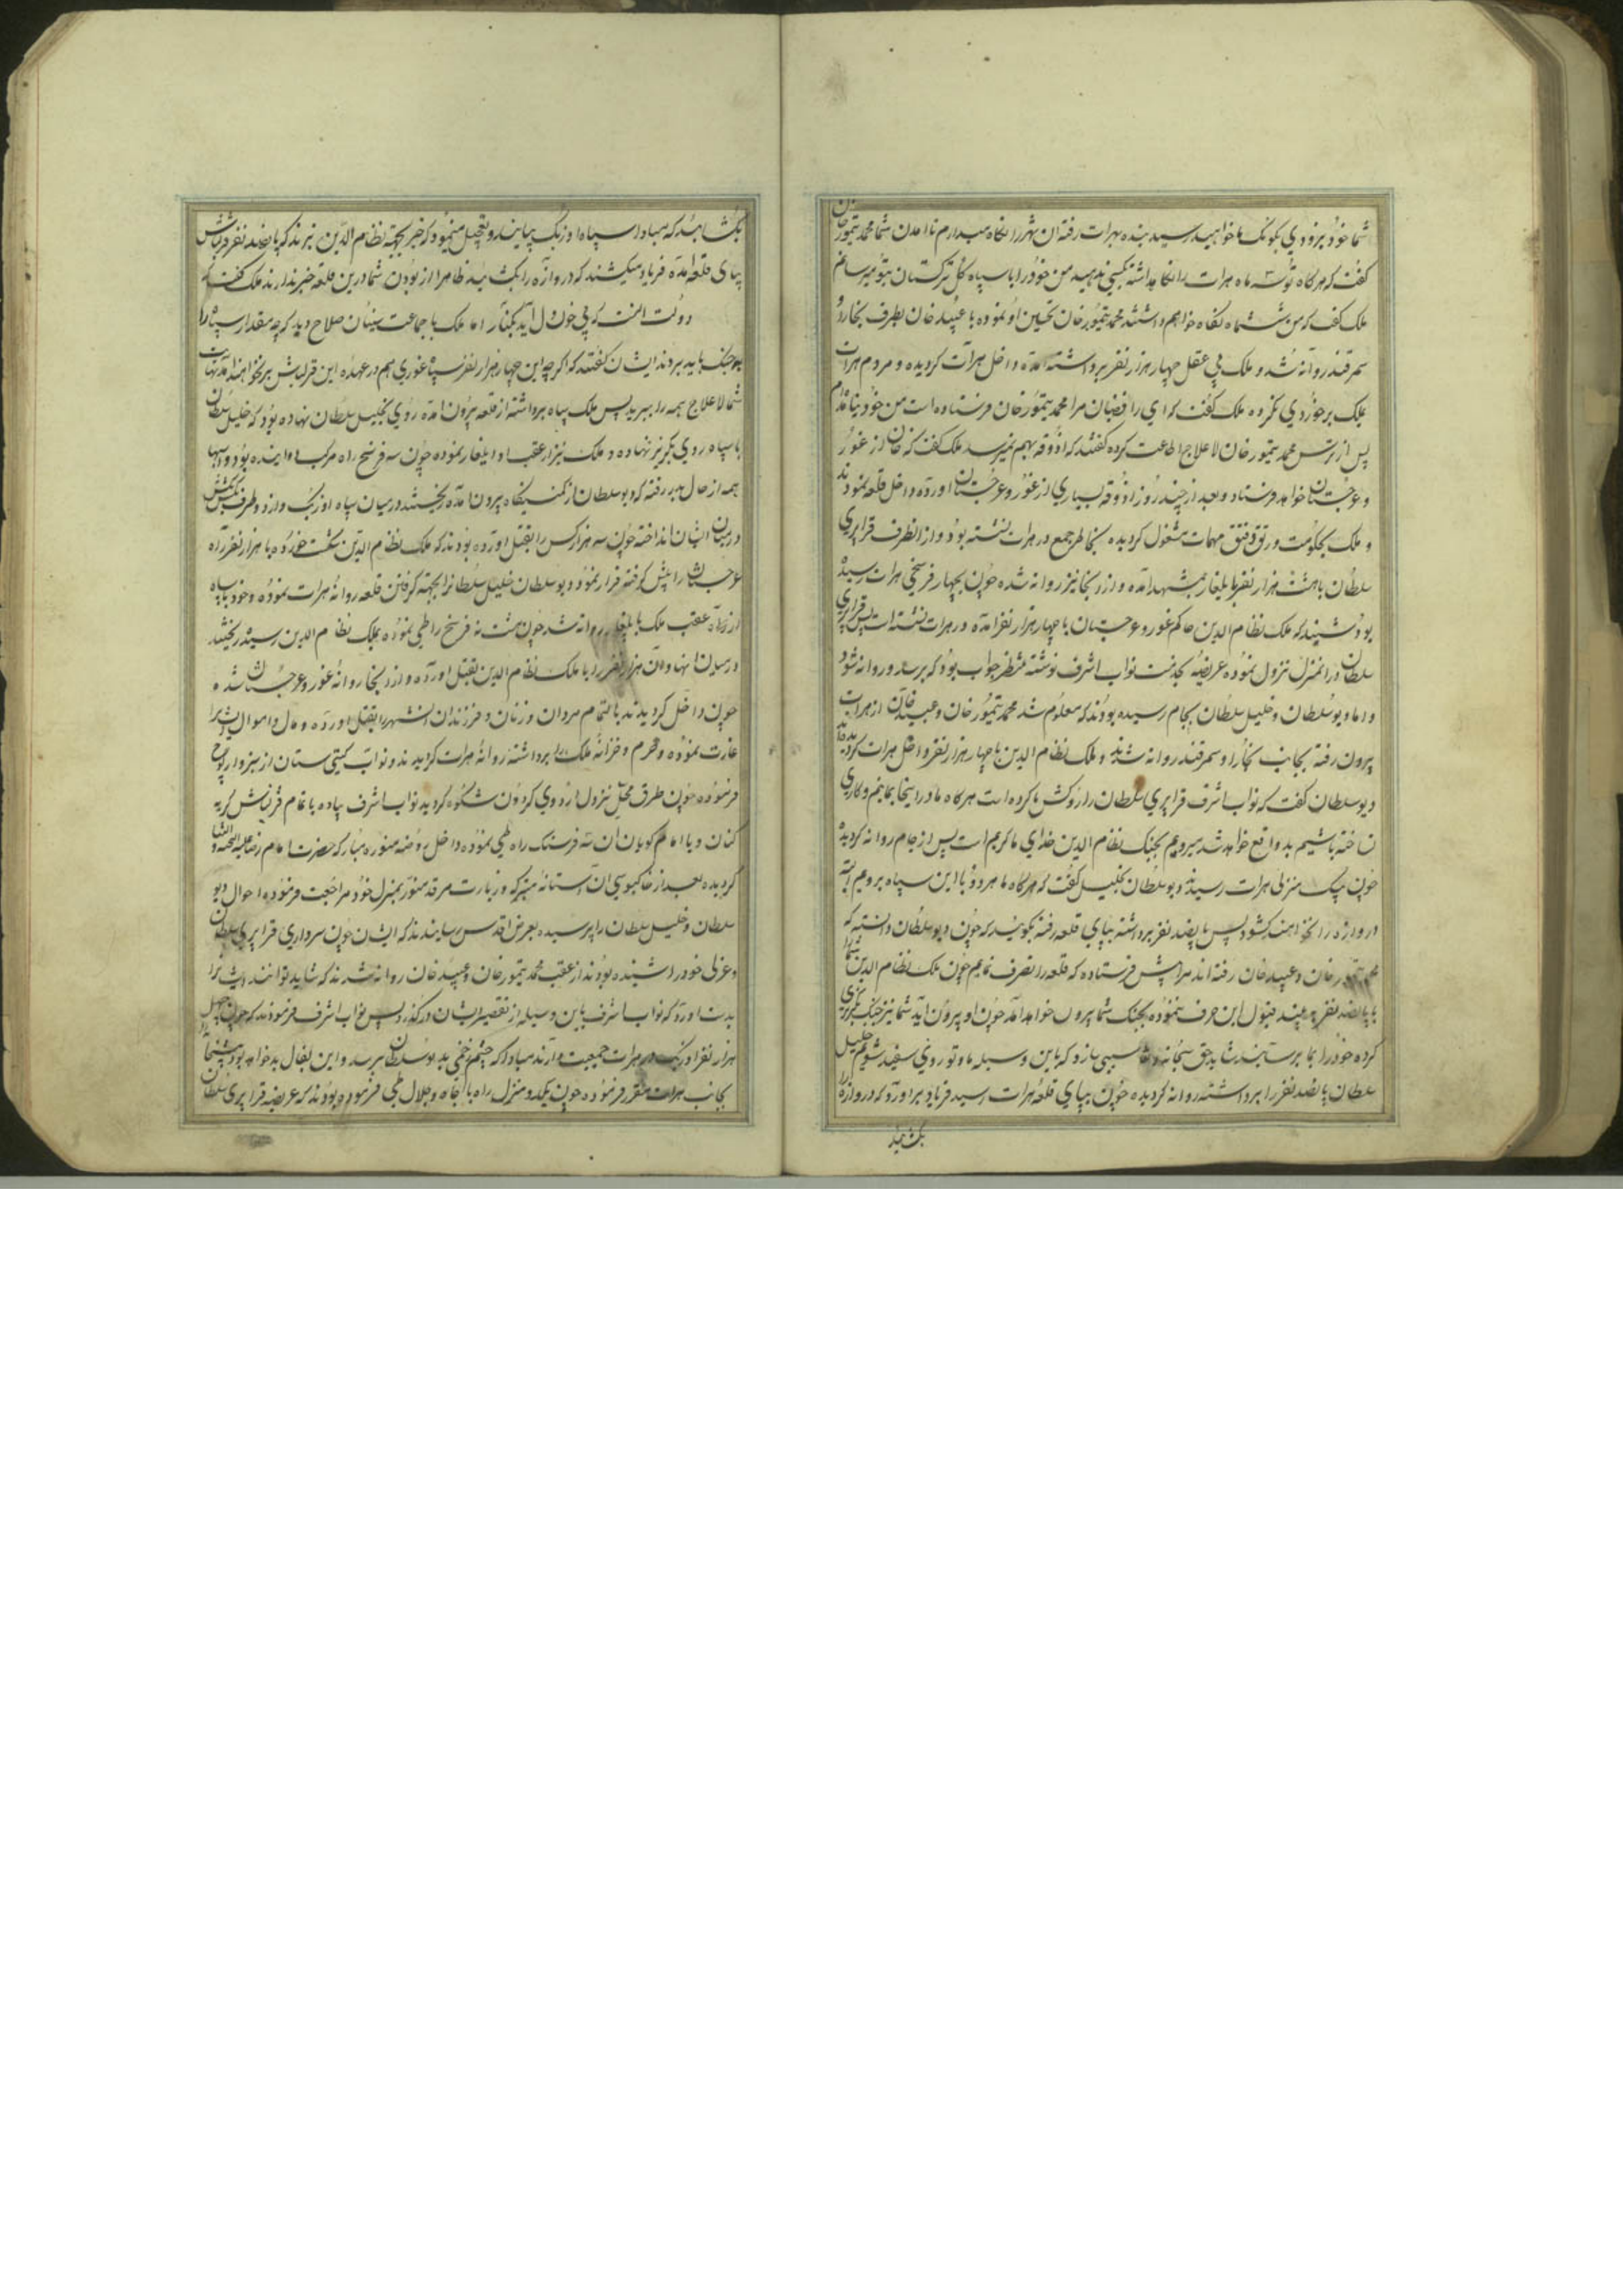 شما خود بزودی بکومک ما خواهید رسید بنده بهرات رفته ان شهر را نگاه میدارم تا امدن شما محمد تیمور خان
گفت که هرگاه تو سه ماه هرات را نگاهداشته بکسی ندهید من خود را با سپاه کل ترکستان بتو میرسانم
ملک گفت که من ششماه نگاه خواهم داشت محمد تیمور خان تحسین او نموده با عبید خان بطرف بخارا و
سمرقند روانه شد و ملک بی عقل چهار هزار نفر برداشته امده داخل هرات گردیده و مردم هرات
بملک برخوردی نکرده ملک گفت که ای رافضیان مرا محمد تیمور خان فرستاده است من خود نیامده ام
پس از ترس محمد تیمور خان لاعلاج اطاعت کرده گفتند که اذوقه بهم نمیرسد ملک گفت که خان از غور
و غرجستان خواهد فرستاد و بعد از چند روز اذوقه بسیاری از غور و غرجستان اورده داخل قلعه نمودند
و ملک بحکومت و رتق و فتق مهمات مشغول گردیده بخاطر جمع در هرات نشسته بود و از انطرف قراپری
سلطان با هشت هزار نفر بایلغار بمشهد امده و از انجا نیز روانه شده چون بچهار فرسخی هرات رسیده
بود شنید که ملک نظام الدین حاکم غور و غرجستان با چهار هزار نفر امده در هرات نشسته است پس قراپری
سلطان در انمنزل نزول نموده عریضه بخدمت نواب اشرف نوشته منتظر جواب بود که برسد و روانه شود
و اما دیو سلطان و خلیل سلطان بجام رسیده بودند که معلوم شد محمد تیمور خان و عبید خان از هرات
بیرون رفته بجانب بخارا و سمرقند روانه شدند و ملک نظام الدین با چهار هزار نفر داخل هرات گردیده
دیو سلطان گفت که نواب اشرف قراپری سلطان را روکش ما کرده است هرگاه ما در اینجا بمانیم و کاری
نساخته باشیم بد واقع خواهد شد میرویم بجنک نظام الدین خدای ما کریم است پس از جام روانه گردیده
چون بیک منزلی هرات رسیدند دیو سلطان بخلیل گفت که هرگاه ما هر دو با این سپاه برویم البته
دروازه را نخواهند گشود پس پانصد نفر برداشته بپای قلعه رفته بگویند که چون دیو سلطان دانسته که
محمد تیمور خان و عبید خان رفته اند مرا پیش فرستاده که قلعه را تصرف نمایم چون ملک نظام الدین شما را
با پانصد نفر به بیند قبول این حرف ننموده بجنک شما بیرون خواهد امد چون او بیرون آید شما نیز جنک بگریز
کرده خود را بما برسانید شاید حق سبحانه و تعالی سببی سازد که باین وسیله ما و تو روی سفید شویم خلیل
سلطان پانصد نفر را برداشته روانه گردیده چون بپای قلعه هرات رسید فریاد براورد که دروازه را
بگشایید
بگشایید که مبادا سپاه اوزبک بیایند و تعجیل مینمود که خبر بجهة نظام الدین بردند که پانصد نفر قزلباش
بپای قلعه امده فریاد میکشند که دروازه را بگشایید ظاهرا از بودن شما درین قلعه خبر ندارند ملک گفت که
دولت انست که بی خون دل آید بکنار اما ملک با جماعت سپتان صلاح دید که چه مقدار سپاه را
بجنک باید برد ایشان گفتند که اگرچه این چهار هزار نفر سپاه غوری هم در عهده این قزلباش بر نخواهند امد نهایت
شما لاعلاج همه را ببرید پس ملک سپاه برداشته از قلعه بیرون امده روی بخلیل سلطان نهاده بود که خلیل سلطان
با سپاه روی بگریز نهاده و ملک نیز از عقب او ایلغار نموده چون سه فرسخ راه مرکب دوانیده بود و اسبها
همه از حال بدر رفته که دیو سلطان از کمینگاه بیرون امده ریختند در میان سپاه اوزبک و از دو طرف
در میان ایشان انداخته چون سه هزار کس را بقتل اورده بودند که ملک نظام الدین شکست خورده با هزار نفر راه
غرجستان را پیش گرفته فرار نمود و دیو سلطان خلیل سلطان را بجهة گرفتن قلعه روانه هرات نموده و خود با سپاه
از راه عقب ملک بایلغار روانه شد چون هشت نه فرسخ راه طی نموده بملک نظام الدین رسید ریختند
در میان انها و آن هزار نفر را با ملک نظام الدین بقتل اورده و از انجا روانه غور و غرجستان شد و
چون داخل گردیدند بالتمام مردان و زنان و فرزندان انشهر را بقتل اورده و مال و اموال ایشانرا
غارت نموده و حرم و خزانه ملک را برداشته روانه هرات گردیدند و نواب گیتی ستان از سبزوار کوچ
فرموده چون طرق محل نزول اردوی گردون شکوه گردید نواب اشرف پیاده با تمام قزلباش گریه
کنان و یا امام گویان ان سه فرسنک راه طی نموده داخل روضه منوره مبارکه حضرت امام رضا علیه التحیة و الثنا
گردیده بعد از خاکبوسی آن استانه متبرکه و زیارت مرقد منور بمنزل خود مراجعت فرموده و احوال دیو
سلطان و خلیل سلطان را پرسیده بعرض اقدس رسانیدند که ایشان چون سرداری قراپری سلطان
و عزلی خود را شنیده بودند از عقب محمد تیمور خان و عبید خان روانه شدند که شاید توانند ایشانرا
بدست اورد که نواب اشرف باین وسیله از تقصیر ایشان در گذرد پس نواب اشرف فرمودند که چون چهل
هزار نفر اوزبک در هرات جمعیت دارند مبادا که چشم زخمی بدیو سلطان برسد و این بفال بد خواهد بود پیشخانه را
بجانب هرات مقرر فرموده چون یک دو منزل راه با جاه و جلال طی فرموده بودند که عریضه قراپری سلطان